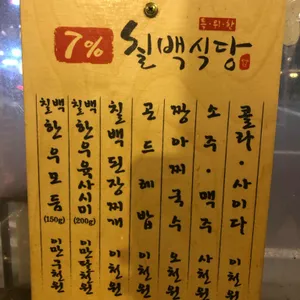 특·위·한
7% 칠백식당
칠백한우모듬 (150g) 이만구천원
칠백한우육사시미 (200g) 이만다천원
칠백된장찌개 이천원
곤드레밥 이천원
짱아찌국수 오천원
소주·맥주 사천원
콜라·사이다 이천원